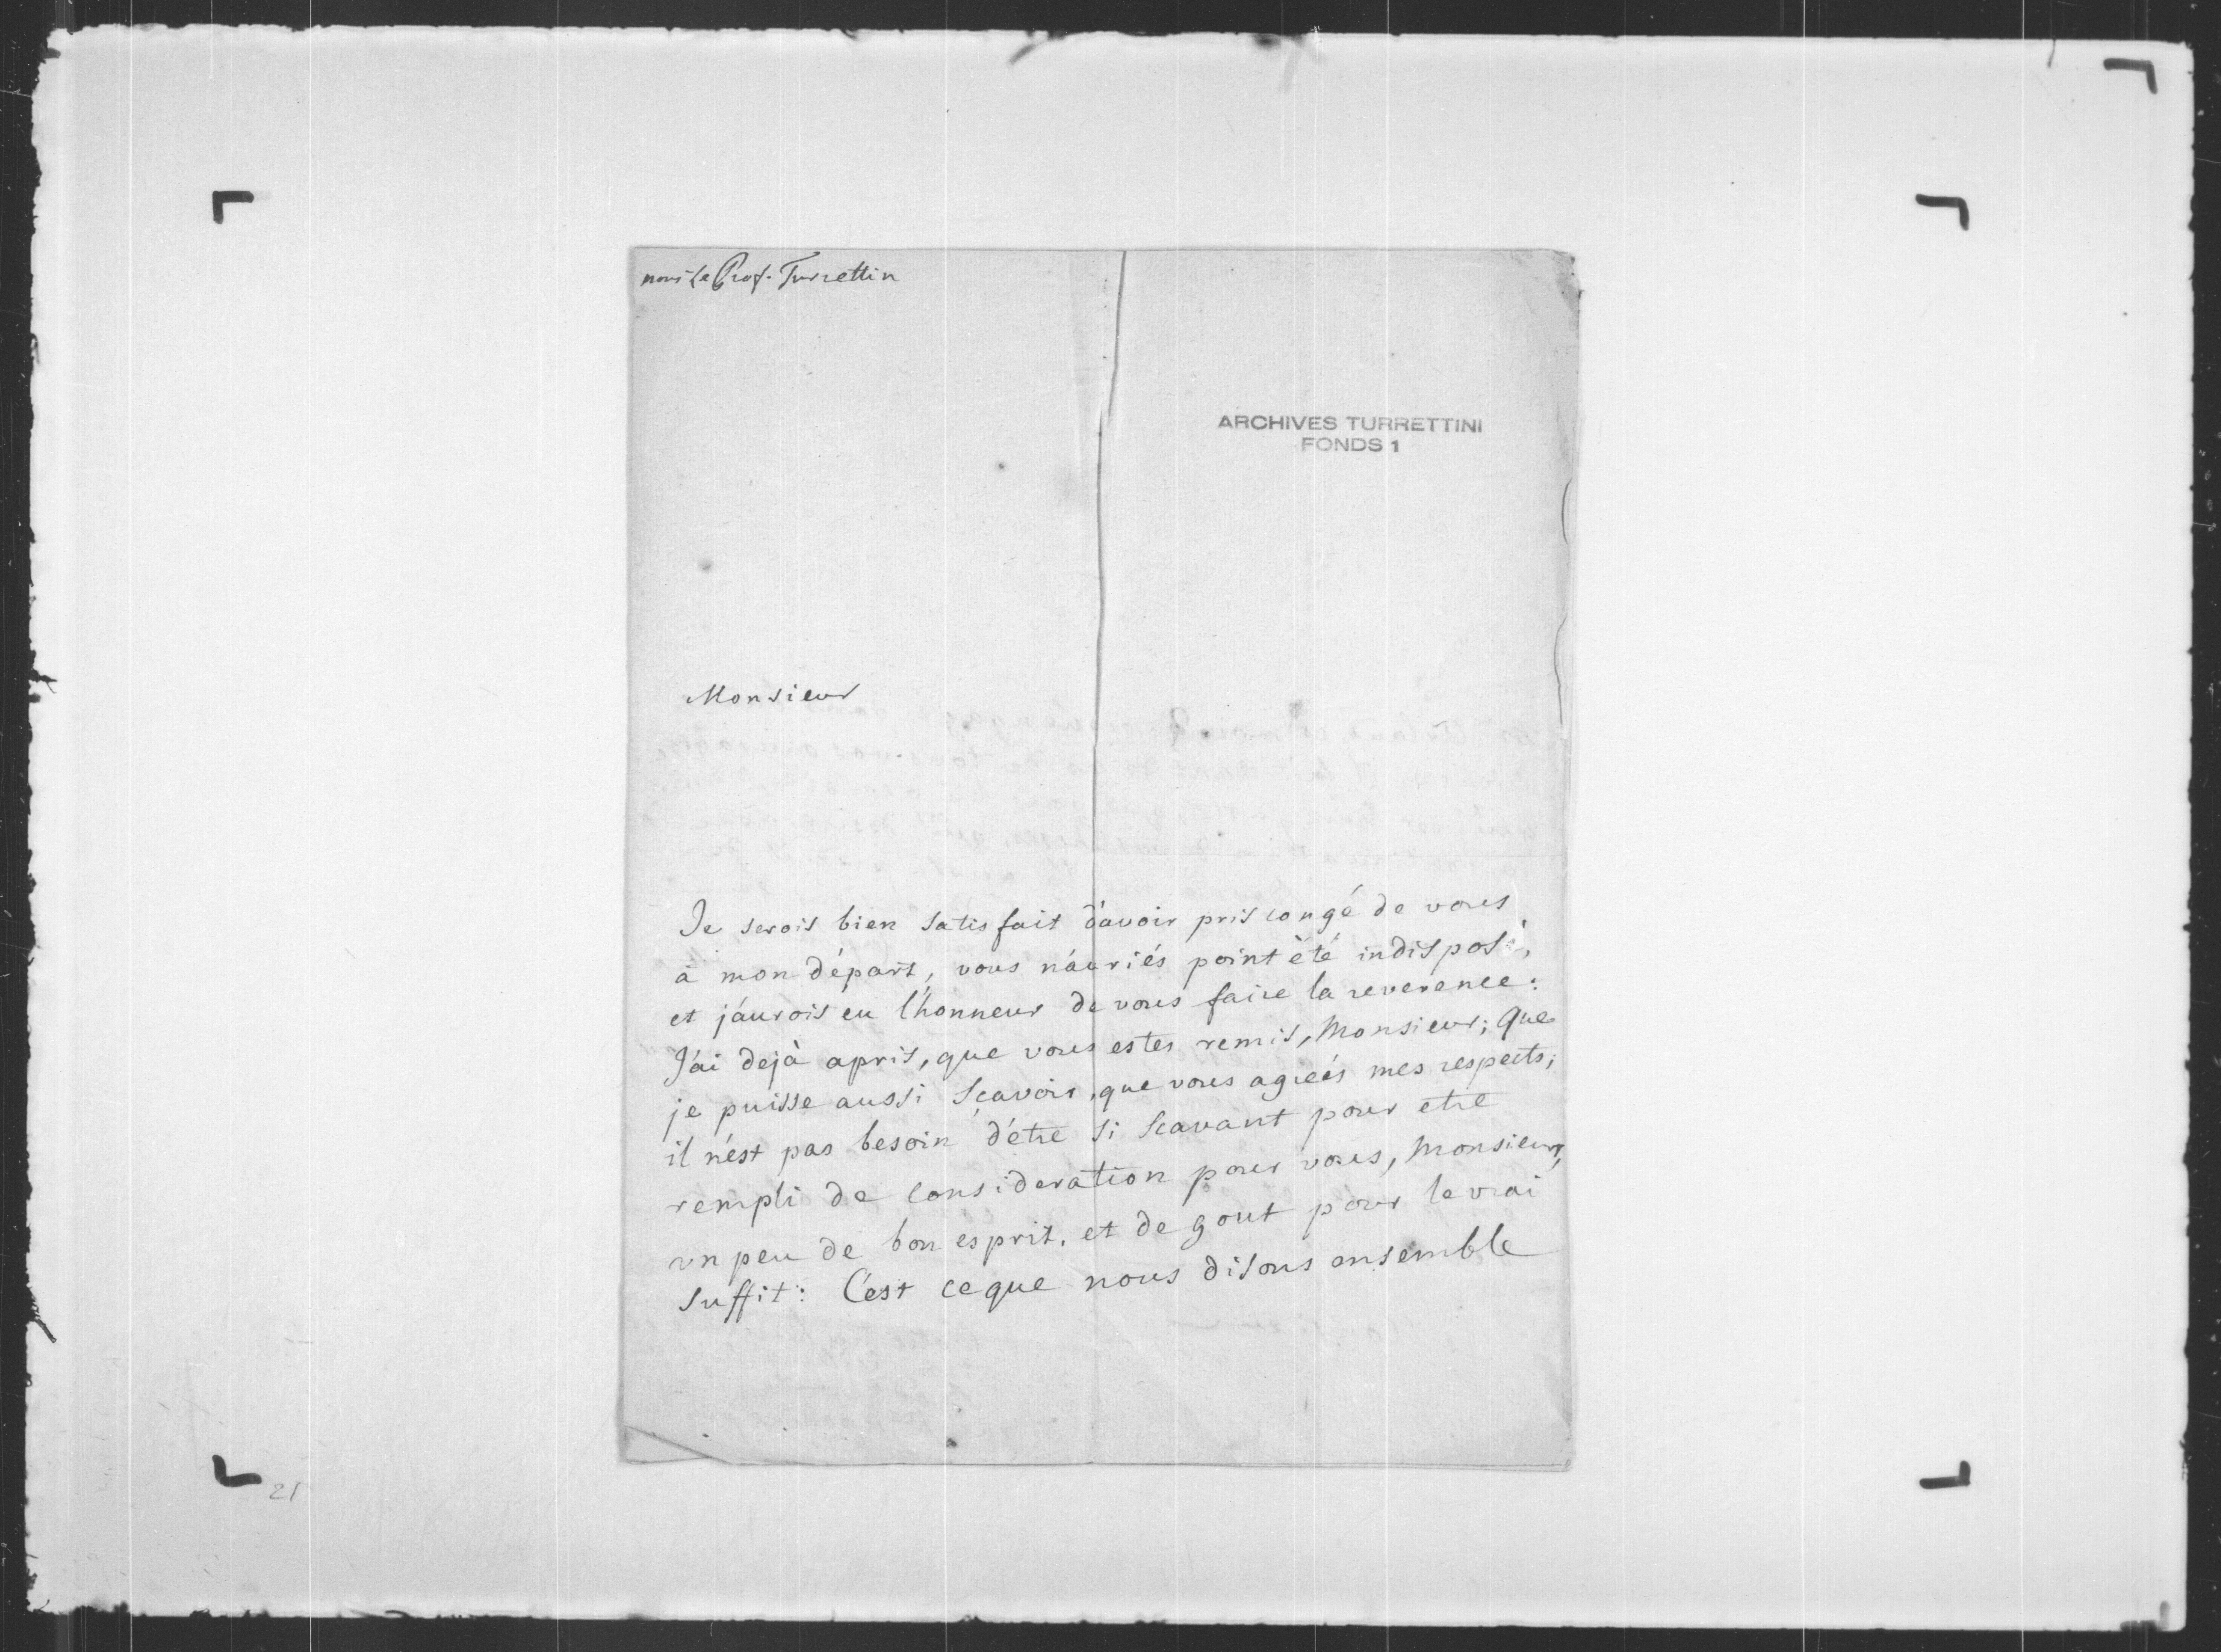 Prof. Turrettin
ARCHIVES TURRETTINI
FONDS 1
Monsieur
Je serois bien satisfait d'avoir pris congé de vous
à mon départ, vous n'auriés point été indisposé,
et j'aurois eu l'honneur de vous faire la reverence:
J'ai dejà apris, que vous estes remis, Monsieur; que
je puisse aussi sçavoir, que vous agreés mes respects;
il n'est pas besoin d'étre si scavant pour etre
rempli de consideration pour vous, Monsieur,
un peu de bon esprit, et de gout pour le vrai
suffit: C'est ce que nous disons ensemble
21